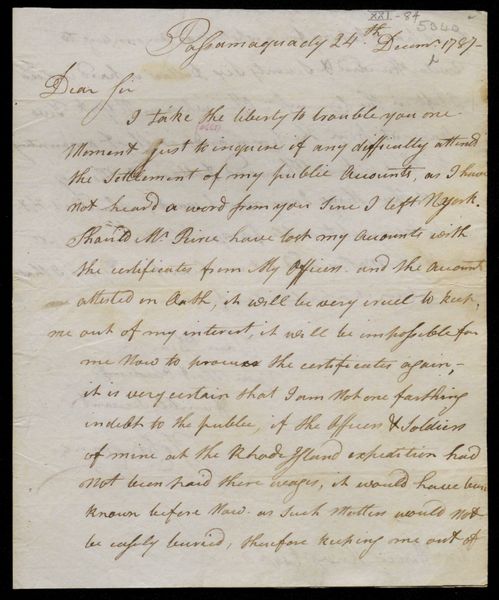 XXI-84
5040
Passamaquady 24th Decemr. 1787-
Dear Sir
I take the liberty to trouble you one
Moment Just to inquire if any difficulty attend
the Settlement of my public Accounts, as I have
not heard a word from you Sine I left NYork.
Should Mr. Pirce have lost my Accounts with
the certificates from My Officers. and the Accounts
attested on Oath, it will be very cruel to keep
me out of my interest, it will be impossible for
me Now to procure the certificates again,-
it is very certain that I am Not one farthing
indebt to the public, if the Officers & Soldiers
of mine at the Rhode Island expedition had
not been paid there wages, it would have been
known before Now. as such Matters would Not
be easely buried, therefore keeping me out of